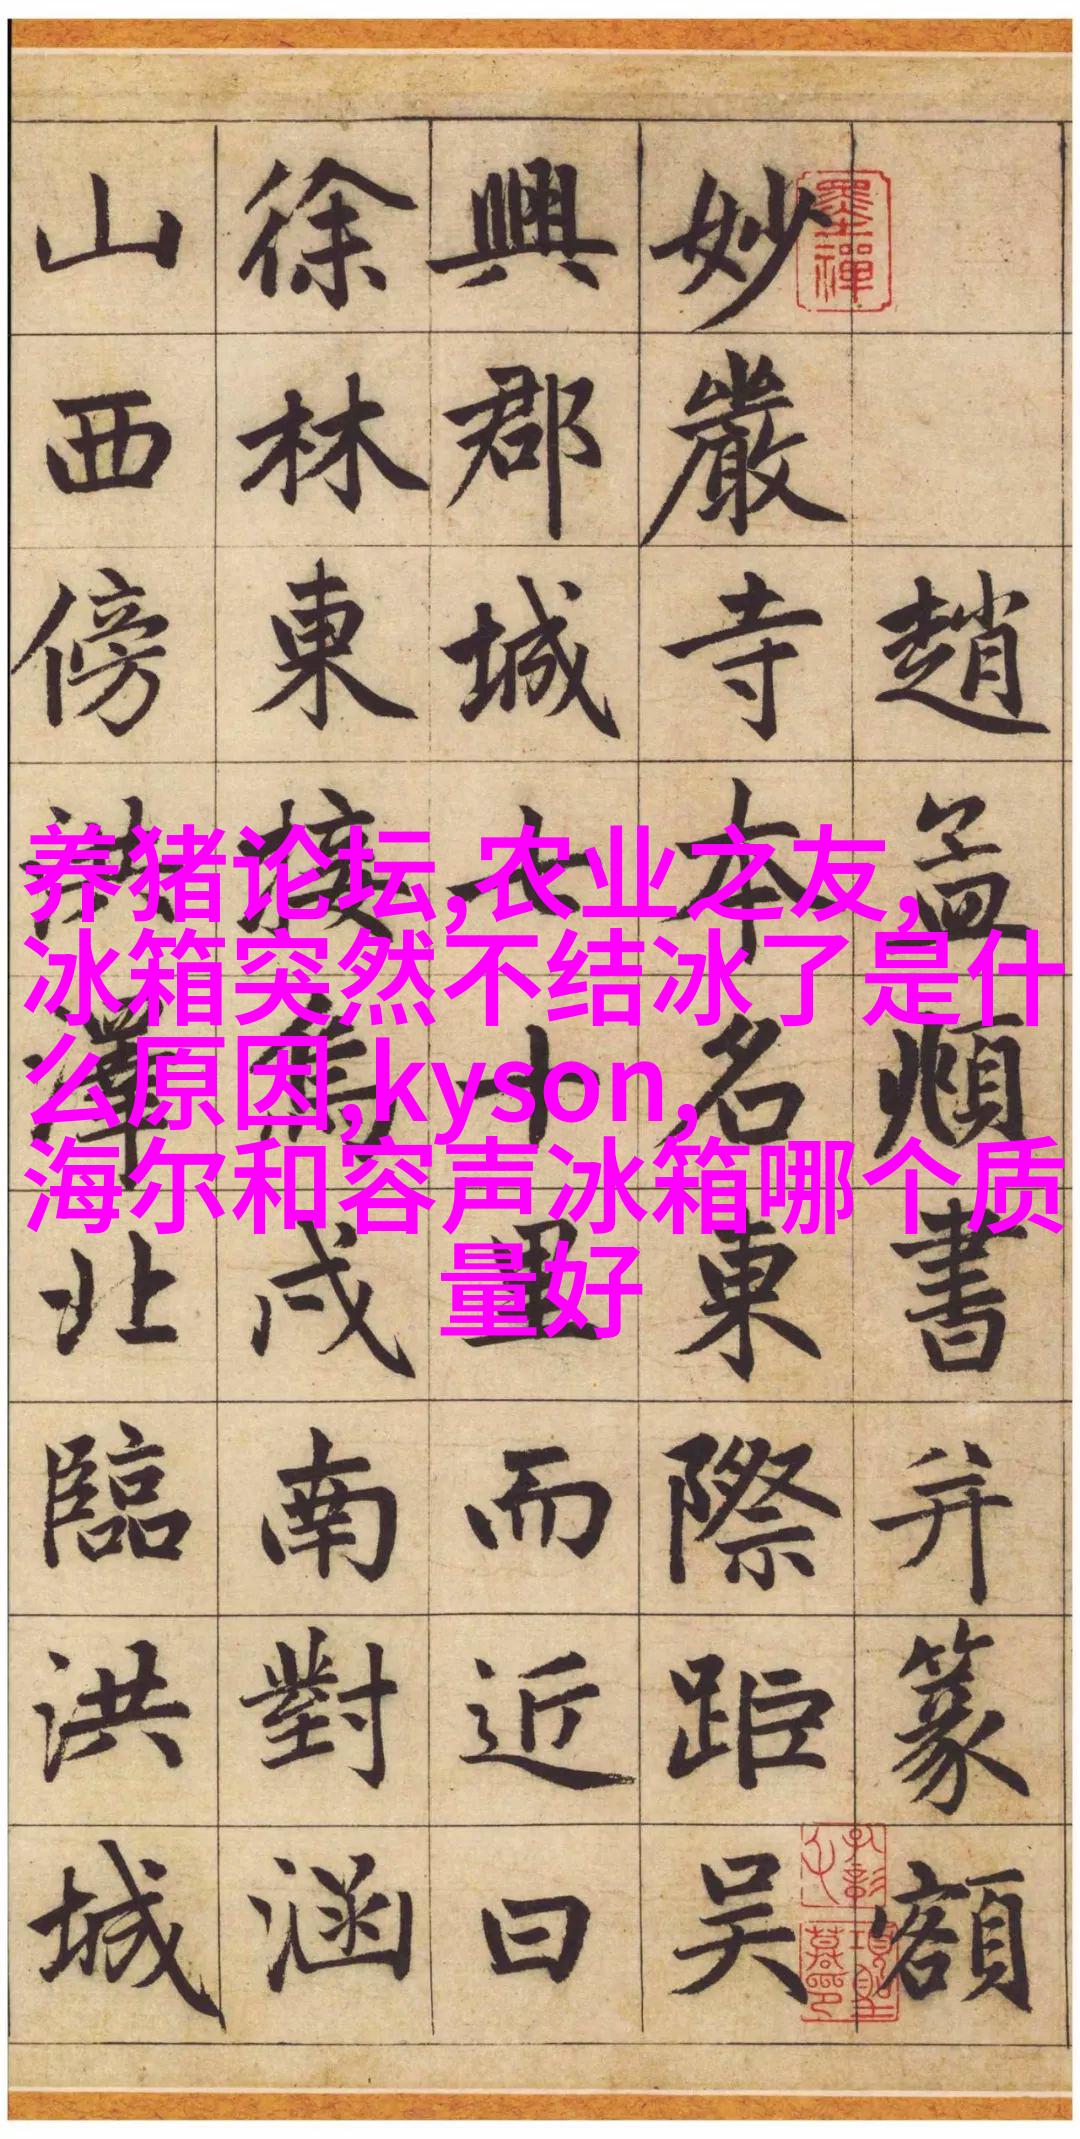 趙孟頫書并篆額
妙嚴寺本名東際距吳
興郡城七十里而近曰
徐林東接烏戍南對涵
山西傍洪澤北臨洪城
墨禪
养猪论坛,农业之友,
冰箱突然不结冰了是什
么原因,kyson,
海尔和容声冰箱哪个质
量好